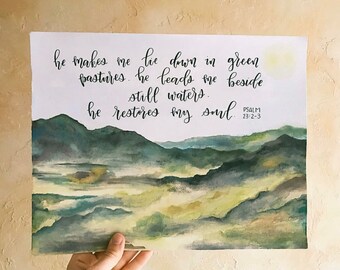 he makes me lie down in green
pastures. he leads me beside
still waters.
he restores my soul
PSALM
23:2-3